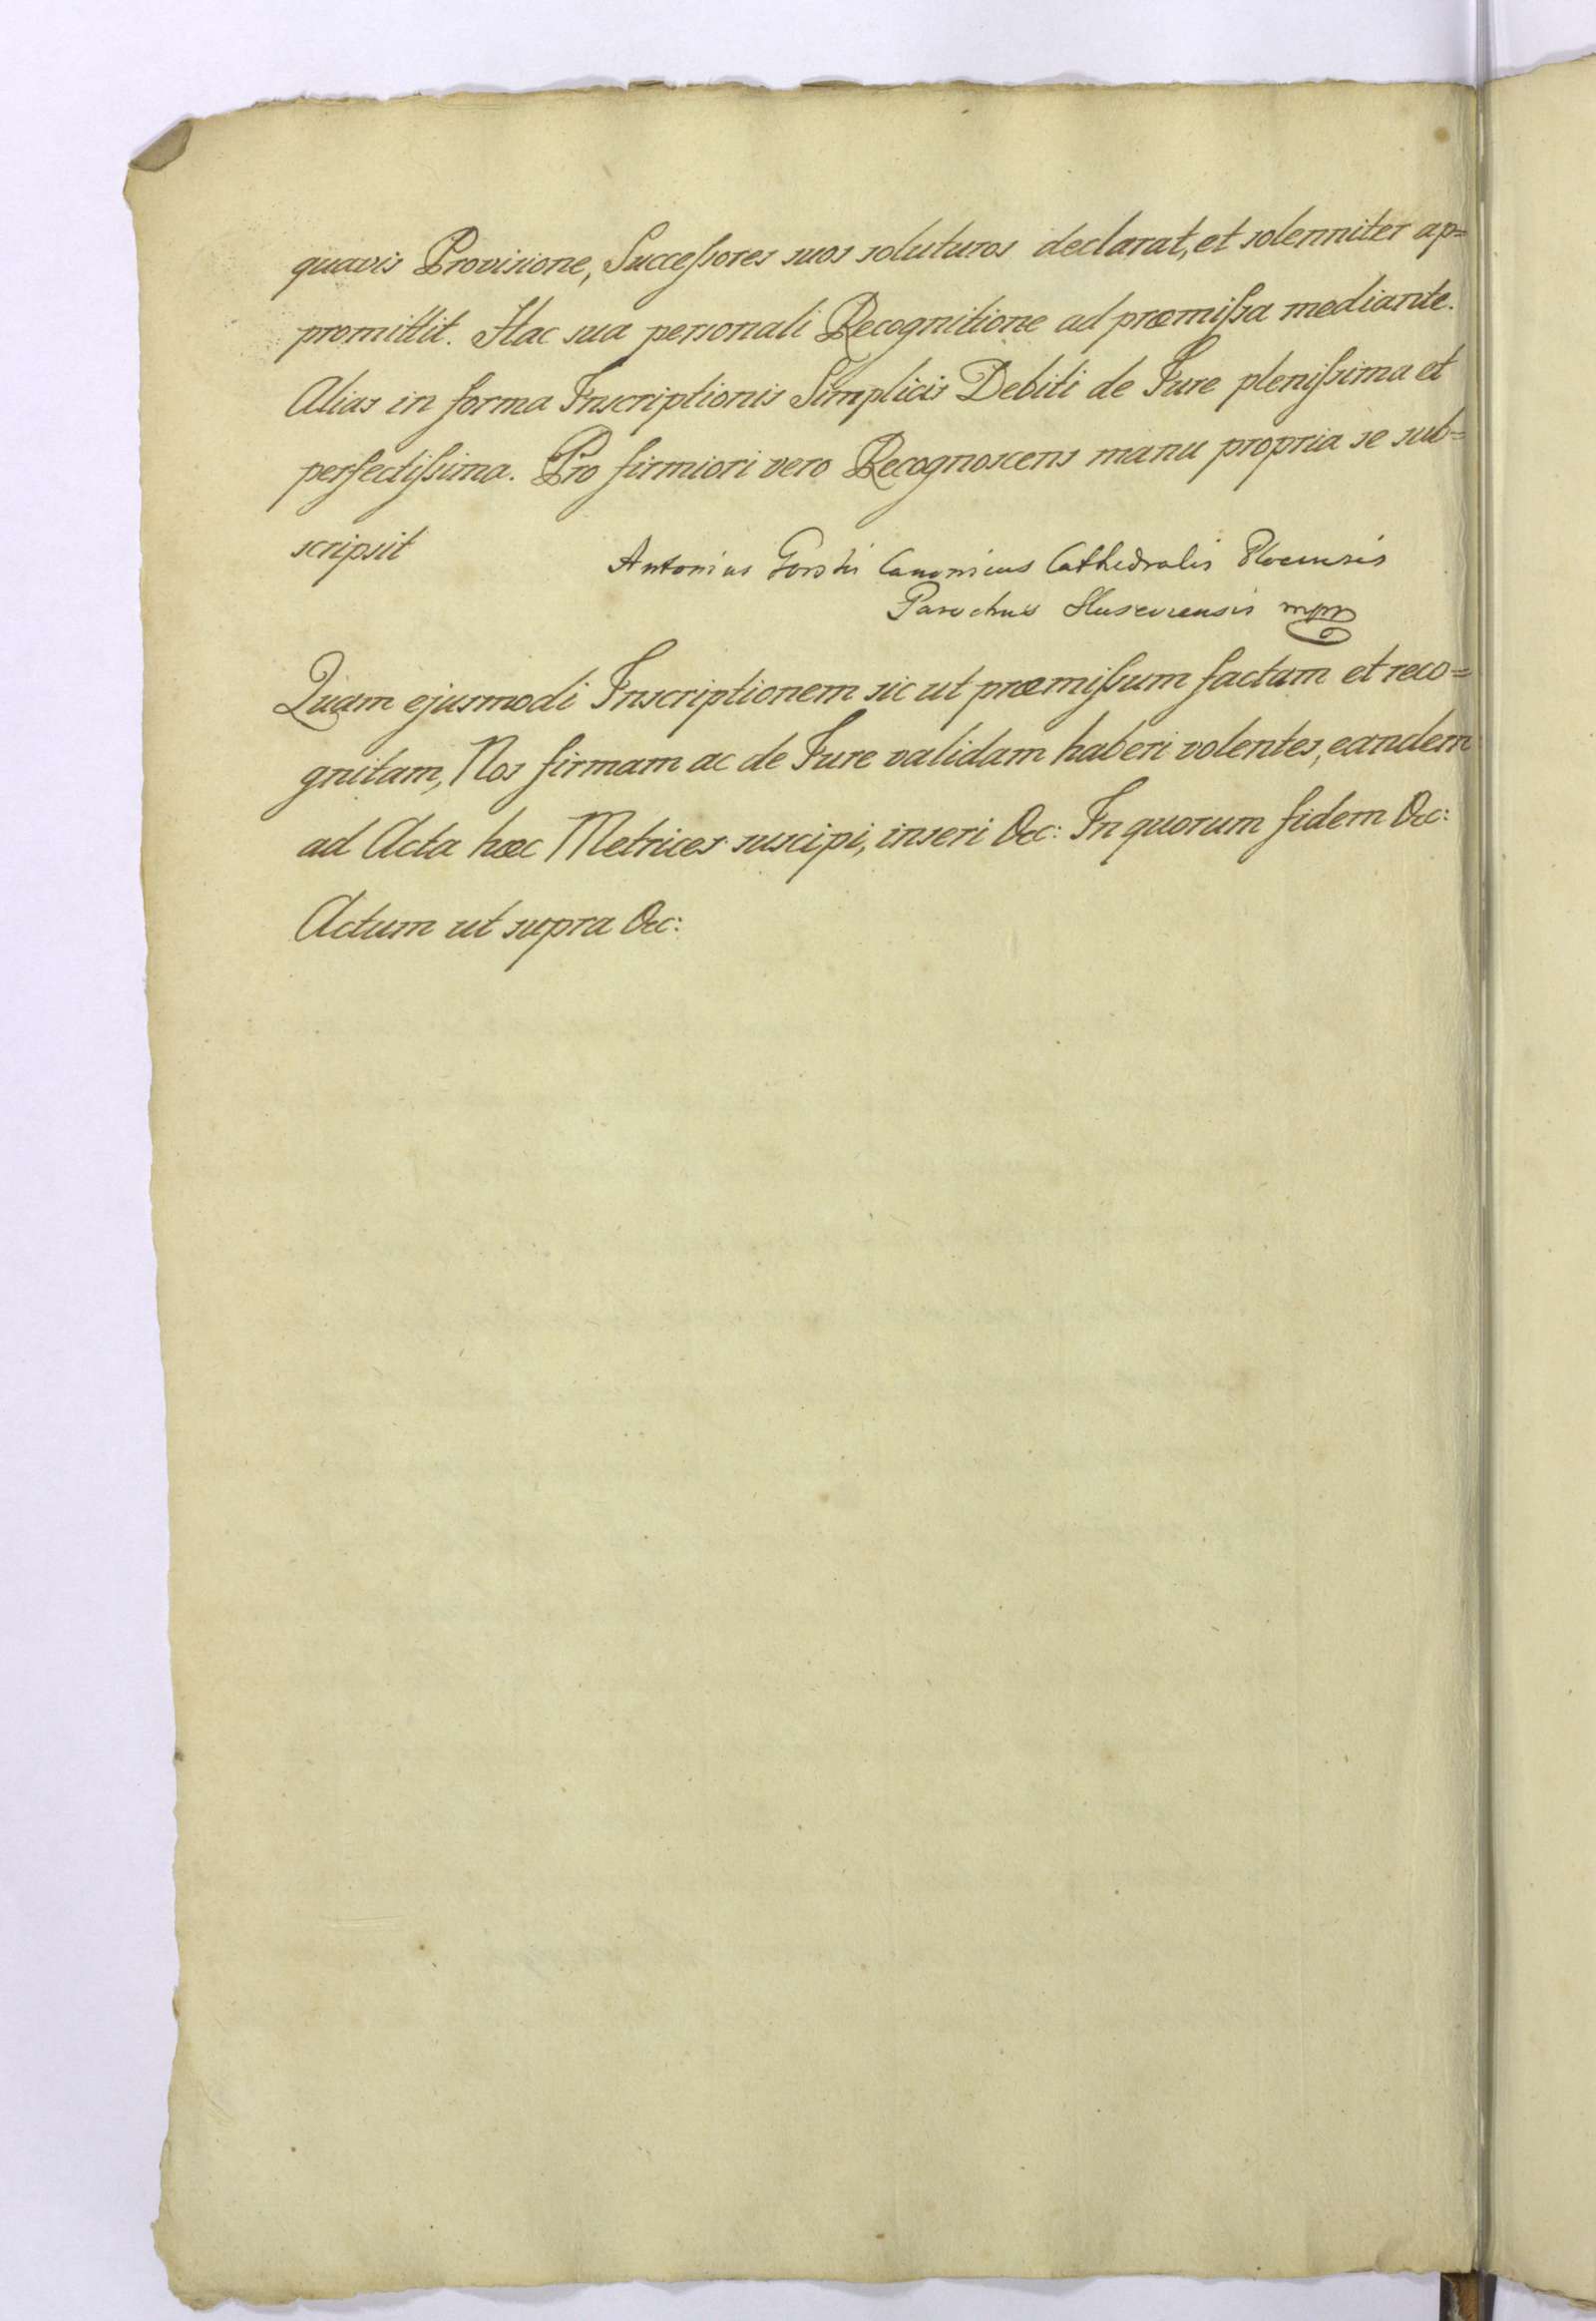 quavis Provisione, Succeſsores suos soluturos declarat, et solenniter ap=
promittit. Hac sua personali Recognitione ad præmiſsa mediante.
Alias in forma Inscriptionis Simplicis Debiti de Jure pleniſsima et
perfectiſsima. Pro firmiori vero Recognoscens manu propria se sub=
scripsit
Antonius Gorski Canonicus Cathedralis Plocensis
Parochus mpp
Quam ejusmodi Inscriptionem sic ut præmiſsum factam et reco=
gnitam, Nos firmam ac de Jure validam haberi volentes, eandem
ad Acta hæc Metrices suscipi, inseri &c: In quorum fidem &c:
Actum ut supra &c: